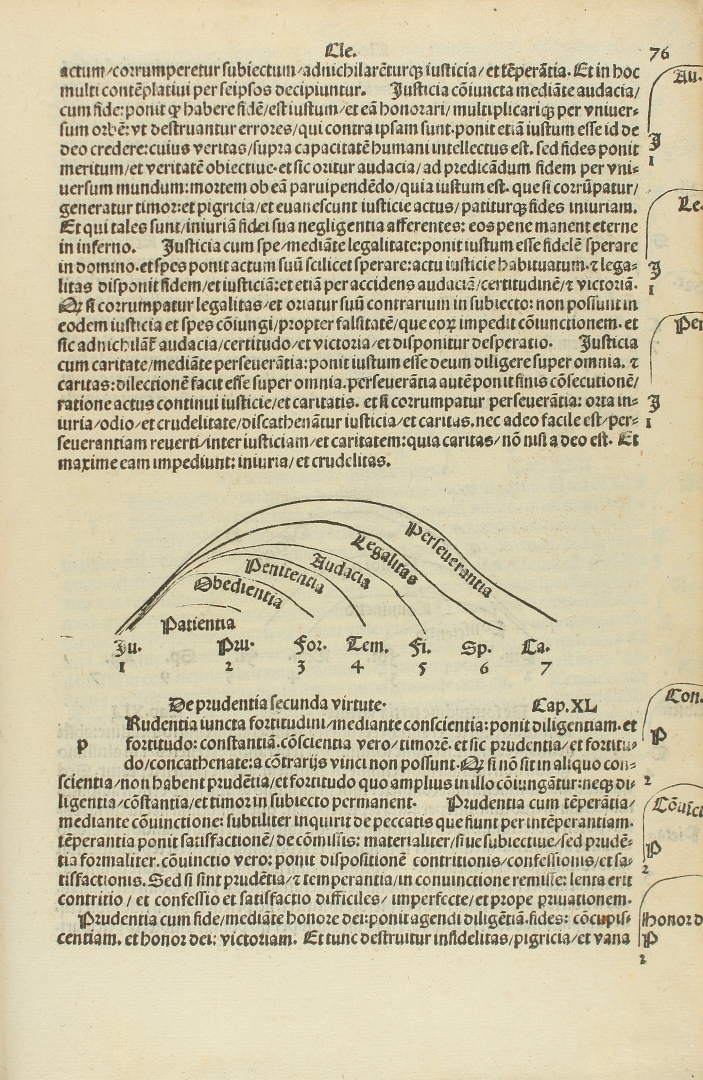 Cle. 76
actum/corrumperetur subiectum/adnichilarẽturqꝫ iusticia/et tẽperãtia. Et in hoc
multi contẽplatiui per seipsos decipiuntur. Justicia cõiuncta mediãte audacia/
cum fide: ponit ꝙ habere fidẽ/est iustum/et eã honorari/multiplicariqꝫ per vniuer-
sum orbẽ: vt destruantur errores/qui contra ipsam sunt. ponit etiã iustum esse id de
deo credere: cuius veritas/supra capacitatẽ humani intellectus est. sed fides ponit
meritum/et veritatẽ obiectiue. et sic oritur audacia/ad predicãdum fidem per vni-
uersum mundum: mortem ob eã paruipendẽdo/quia iustum est. que si corrũpatur/
generatur timor: et pigricia/et euanescunt iusticie actus/patiturqꝫ fides iniuriam.
Et qui tales sunt/iniuriã fidei sua negligentia afferentes: eos pene manent eterne
in inferno. Justicia cum spe/mediãte legalitate: ponit iustum esse fidelẽ sperare
in domino. et spes ponit actum suũ scilicet sperare: actu iusticie habituatum. ⁊ lega-
litas disponit fidem/et iusticiã: et etiã per accidens audaciã/certitudinẽ/⁊ victoriã.
Qꝛ si corrumpatur legalitas/et oriatur suũ contrarium in subiecto: non possunt in
eodem iusticia et spes cõiungi/propter falsitatẽ/que eoꝝ impedit cõiunctionem. et
sic adnichilãt᷑ audacia/certitudo/et victoria/et disponitur desperatio. Justicia
cum caritate/mediãte perseuerãtia: ponit iustum esse deum diligere super omnia. ⁊
caritas: dilectionẽ facit esse super omnia. perseuerãtia autẽ ponit finis cõsecutionẽ/
ratione actus continui iusticie/et caritatis. et si corrumpatur perseuerãtia: orta in-
iuria/odio/et crudelitate/discathenãtur iusticia/et caritas. nec adeo facile est/per-
seuerantiam reuerti/inter iusticiam/et caritatem: quia caritas/nõ nisi a deo est. Et
maxime eam impediunt: iniuria/et crudelitas.
Perseuerantia
Legalitas
Audacia
Penitentia
Obedientia
Patientia
Ju. Pru. For. Tem. Fi. Sp. Ca.
1 2 3 4 5 6 7
De prudentia secunda virtute. Cap. XL
p Rudentia iuncta fortitudini/mediante conscientia: ponit diligentiam. et
fortitudo: constantiã. cõscientia vero/timorẽ. et sic prudentia/et fortitu-
do/concathenate: a cõtrarijs vinci non possunt. Qꝛ si nõ sit in aliquo con-
scientia/non habent prudẽtia/et fortitudo quo amplius in illo cõiungãtur: neqꝫ di-
ligentia/cõstantia/et timor in subiecto permanent. Prudentia cum tẽperãtia/
mediante cõuinctione: subtiliter inquirit de peccatis que fiunt per intẽperantiam.
tẽperantia ponit satisfactionẽ/de cõmissis: materialiter/siue subiectiue/sed prudẽ-
tia formaliter. cõuinctio vero: ponit dispositionẽ contritionis/confessionis/et sa-
tisfactionis. Sed si sint prudẽtia/⁊ temperantia/in conuinctione remisse: lenta erit
contritio/et confessio et satisfactio difficiles/imperfecte/et prope priuationem.
Prudentia cum fide/mediãte honore dei: ponit agendi diligẽtiã. fides: cõcupis-
centiam. et honor dei: victoriam. Et tunc destruitur infidelitas/pigricia/et vana
Au.
J
1
Le.
J
1
Per
J
1
Con.
P
2
Cõuict
P
2
Honor d
P
2